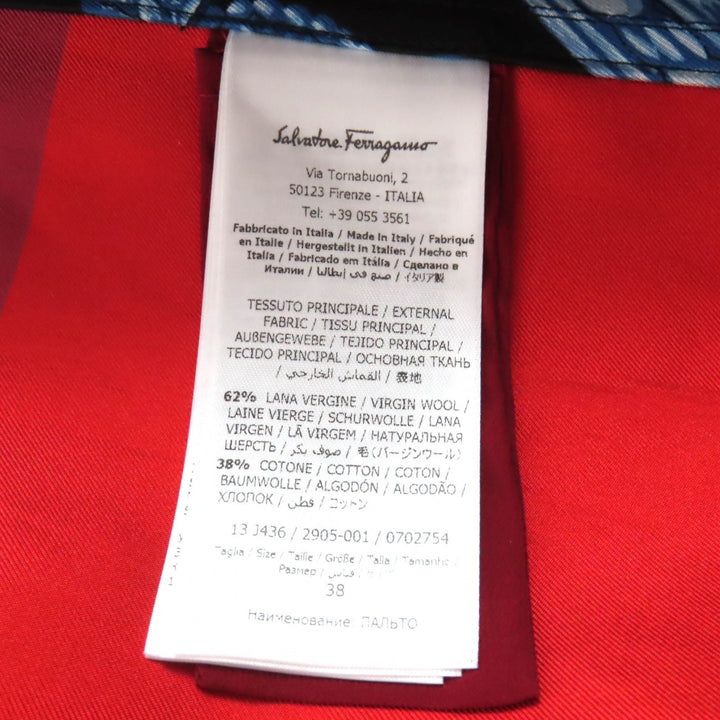 Salvatore Ferragamo
Via Tornabuoni, 2
50123 Firenze - ITALIA
Tel: +39 055 3561
Fabbricato in Italia / Made in Italy / Fabriqué
en Italie / Hergestellt in Italien / Hecho en
Italia / Fabricado em Itália / Сделано в
Италии / صنع في إيطاليا / イタリア製
TESSUTO PRINCIPALE / EXTERNAL
FABRIC / TISSU PRINCIPAL /
AUßENGEWEBE / TEJIDO PRINCIPAL /
TECIDO PRINCIPAL / ОСНОВНАЯ ТКАНЬ
/ القماش الخارجي / 表地
62% LANA VERGINE / VIRGIN WOOL /
LAINE VIERGE / SCHURWOLLE / LANA
VIRGEN / LÃ VIRGEM / НАТУРАЛЬНАЯ
ШЕРСТЬ / صوف بكر / 毛(バージンウール)
38% COTONE / COTTON / COTON /
BAUMWOLLE / ALGODÓN / ALGODÃO /
ХЛОПОК / قطن / コットン
13 J436 / 2905-001 / 0702754
Taglia / Size / Taille / Größe / Talla / Tamanho /
Размер / قياس /
38
Наименование: ПАЛЬТО